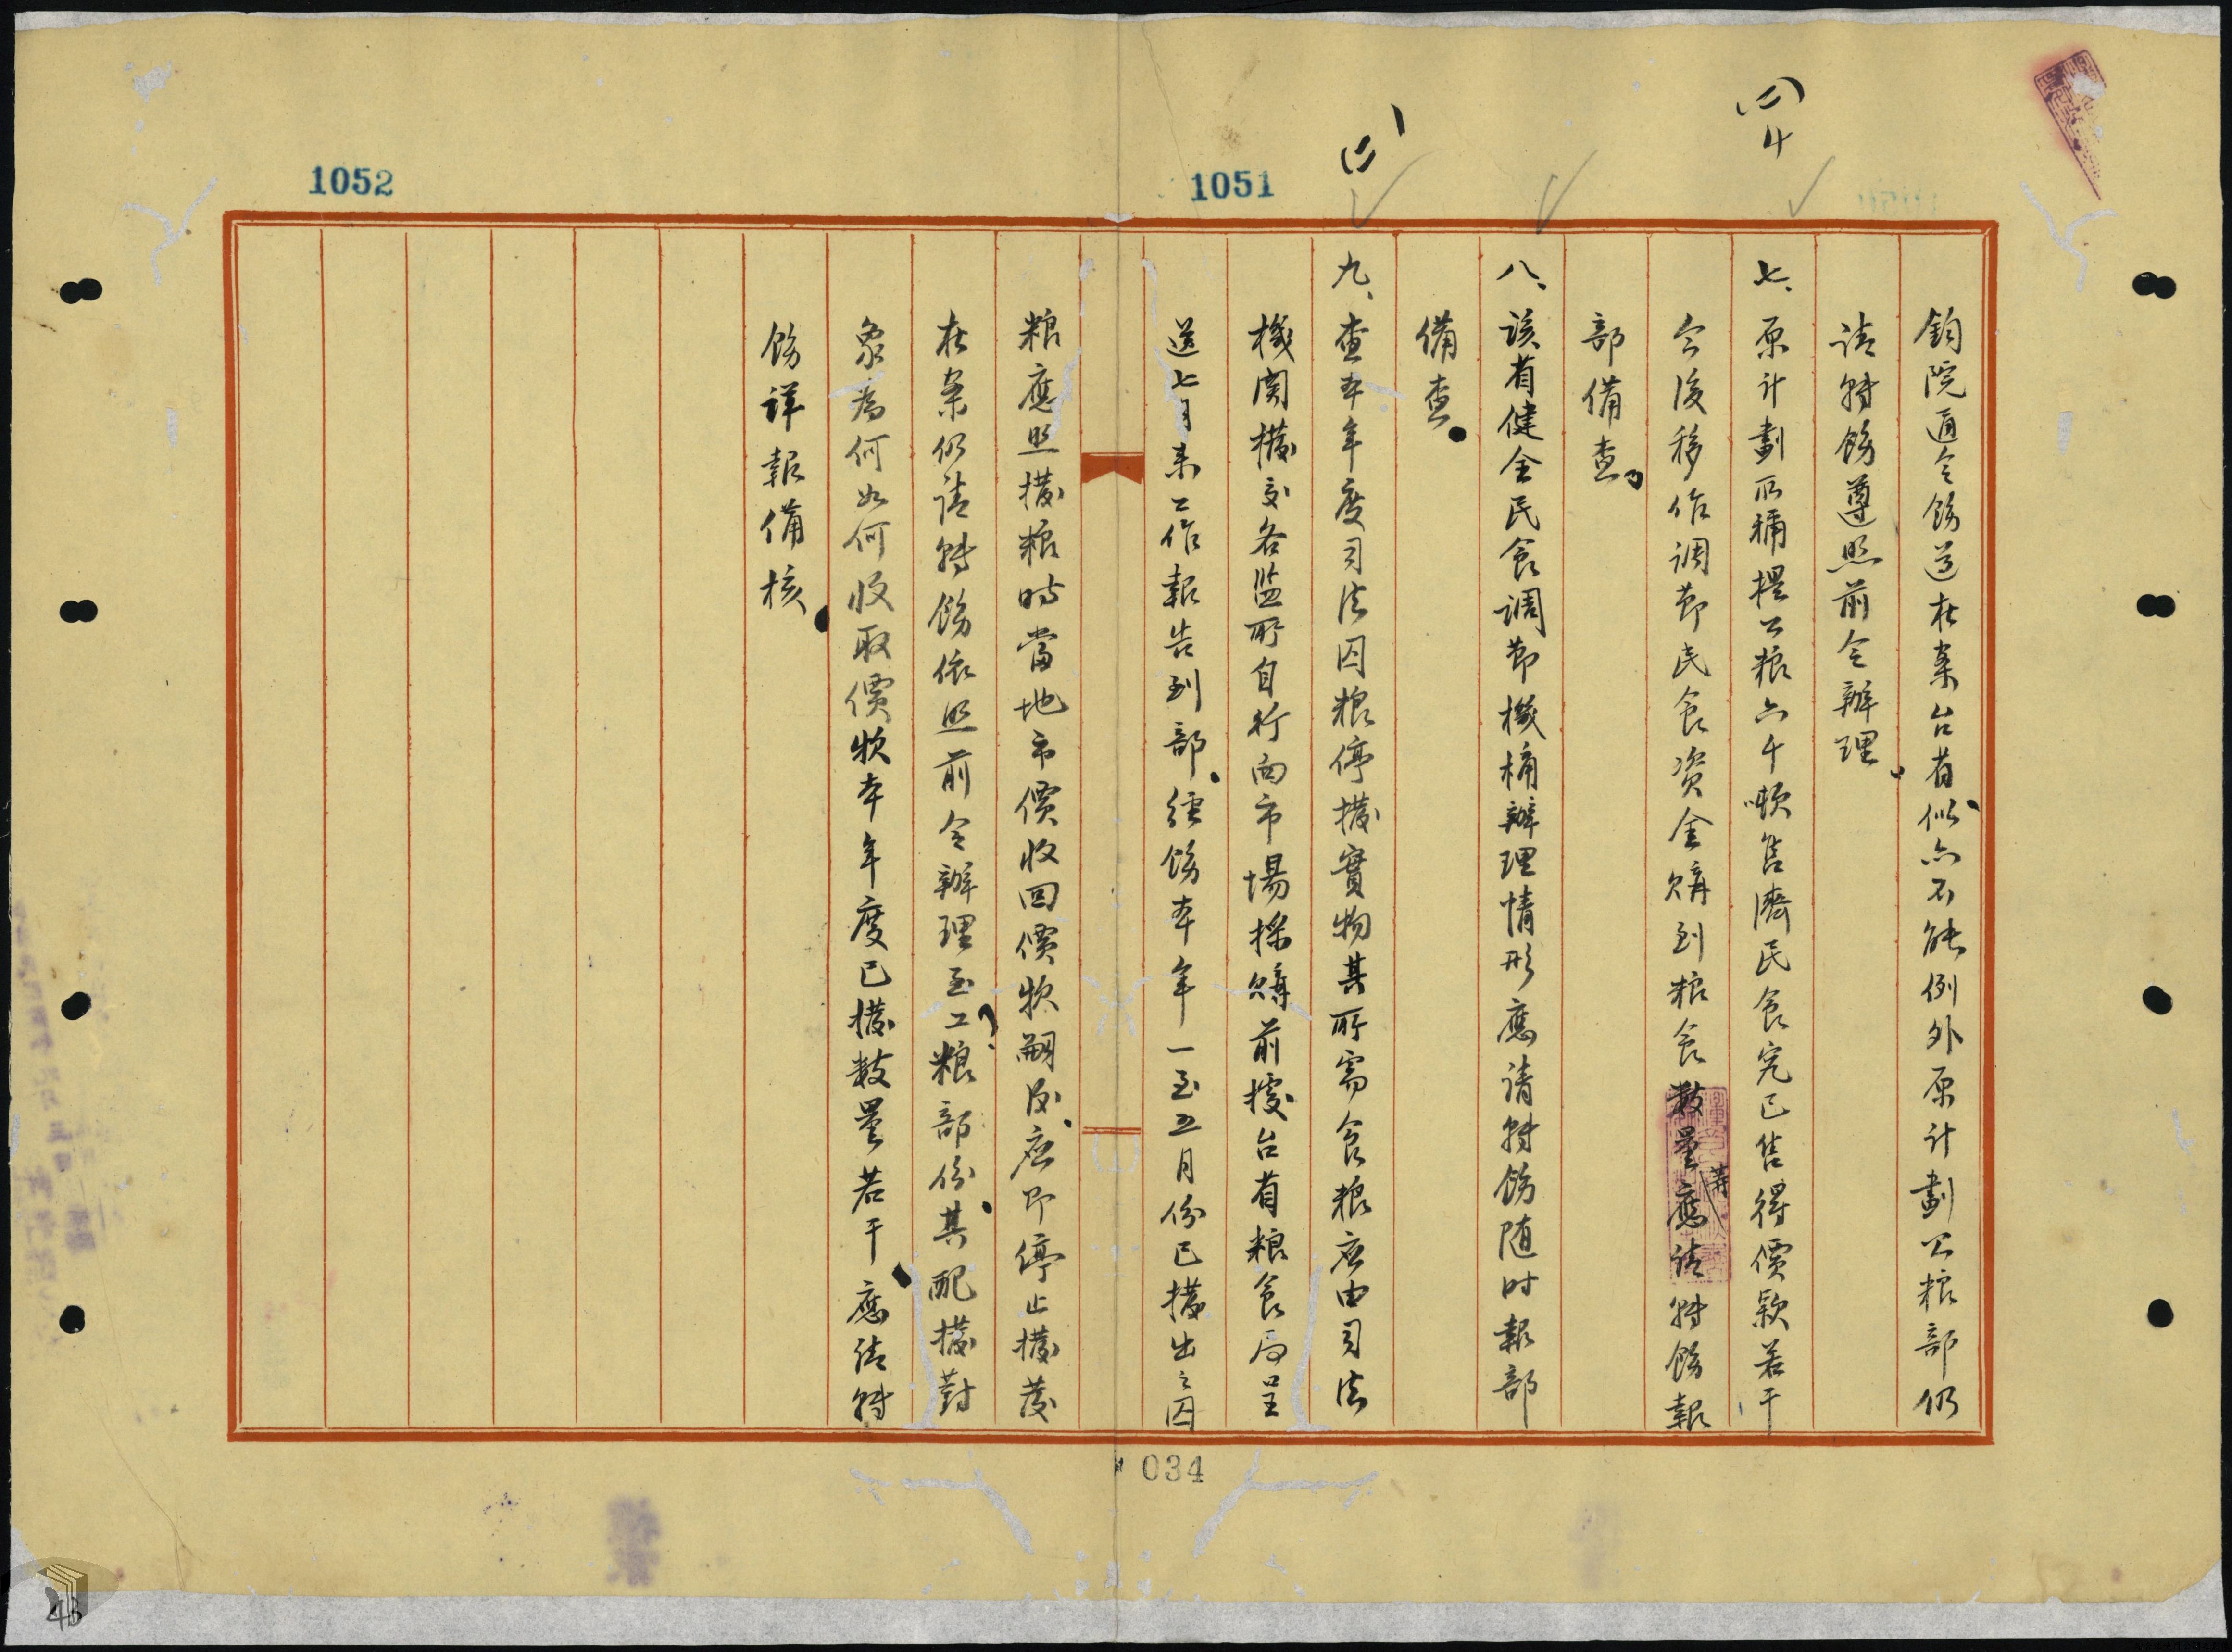 鈞院通令飭遵在案台省似亦不能例外原计劃公粮部仍
請转飭遵照前令辦理
七、原计劃所稱撥公粮六千噸售濟民食究已售得價款若干
今後移作调節民食资金購到粮食数量若干應請转飭報
部備查
八、該省健全民食调節機構辦理情形應請转飭随时報部
備查
九、查本年度司法囚粮停撥實物其所需食粮应由司法
機関撥交各监所自行向市場採購前據台省粮食局呈
送七月来工作報告到部經飭本年一至五月份已撥出之囚
粮應照撥粮時當地市價收回價款嗣後应即停止撥發
在案仍請转飭依照前令辦理至工粮部份其配撥對
象為何如何收取價款本年度已撥数量若干應請转
飭詳報備核
1051
1052
034
43